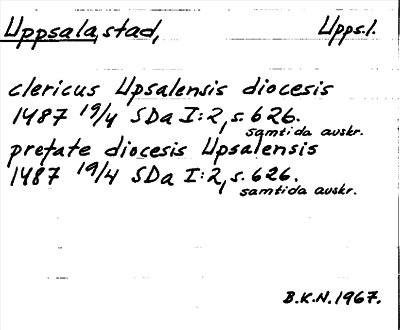 Uppsala, stad, Upps. l.
clericus Upsalensis diocesis
1487 19/4 SDa I:2, s. 626.
samtida avskr.
prefate diocesis Upsalensis
1487 19/4 SDa I:2, s. 626.
samtida avskr.
B.K.N. 1967.